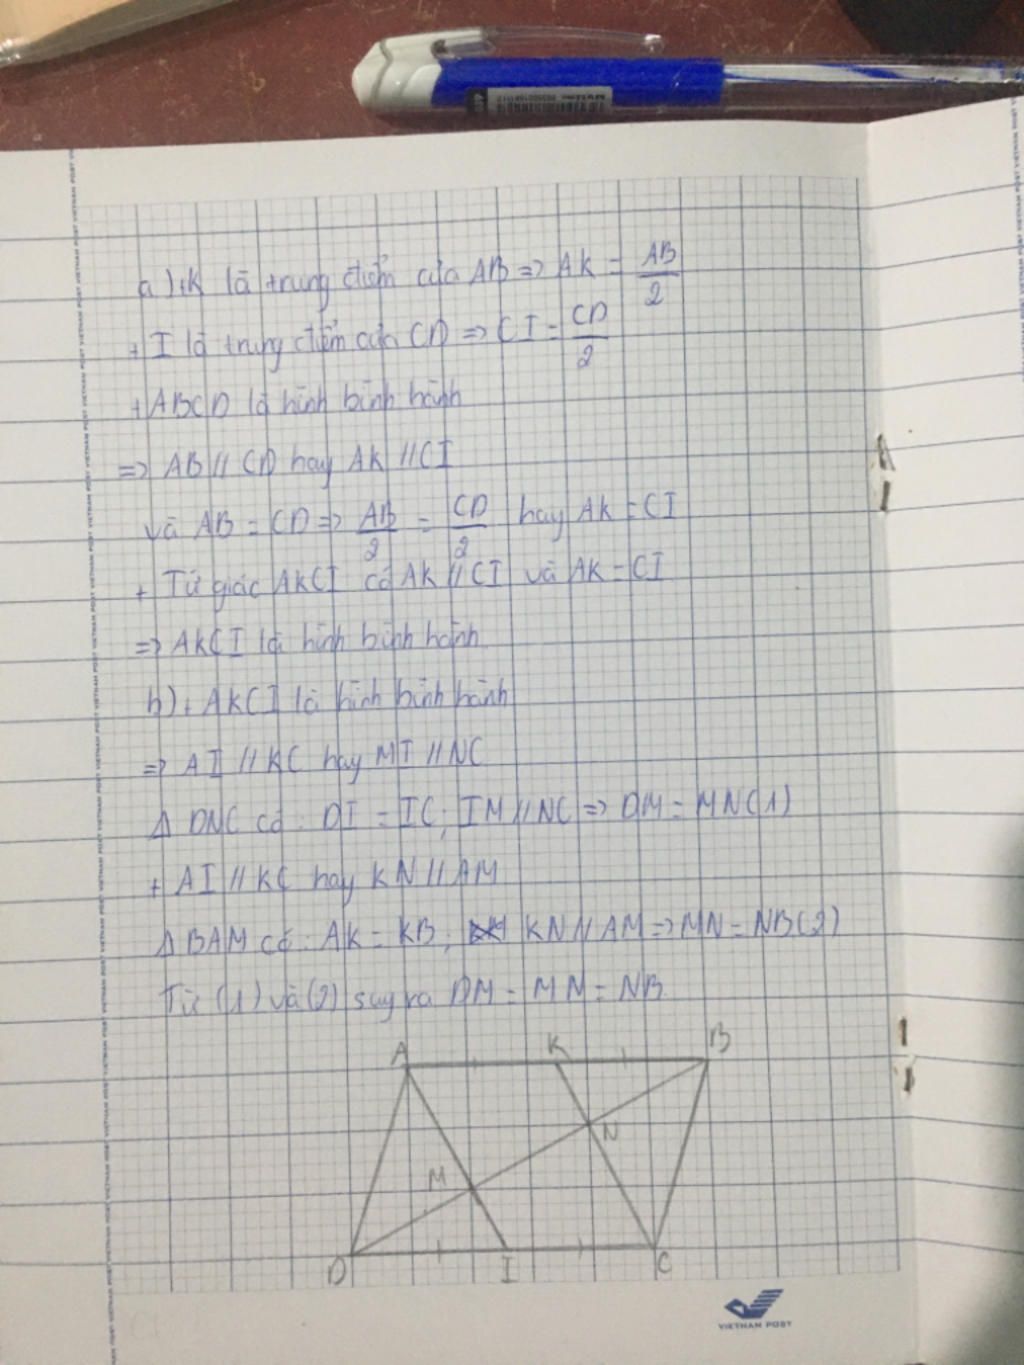 a) + K là trung điểm của AB => AK = AB/2
+ I là trung điểm của CD => CI = CD/2
+ ABCD là hình bình hành
=> AB // CD hay AK // CI
và AB = CD => AB/2 = CD/2 hay AK = CI
+ Tứ giác AKCI có AK // CI và AK = CI
=> AKCI là hình bình hành
b) + AKCI là hình bình hành
=> AI // KC hay MI // NC
Δ DNC có: DI = IC; IM // NC => DM = MN (1)
+ AI // KC hay KN // AM
Δ BAM có: AK = KB; KN // AM => MN = NB (2)
Từ (1) và (2) suy ra DM = MN = NB
A K B
N
M
D I C
VIETNAM POST